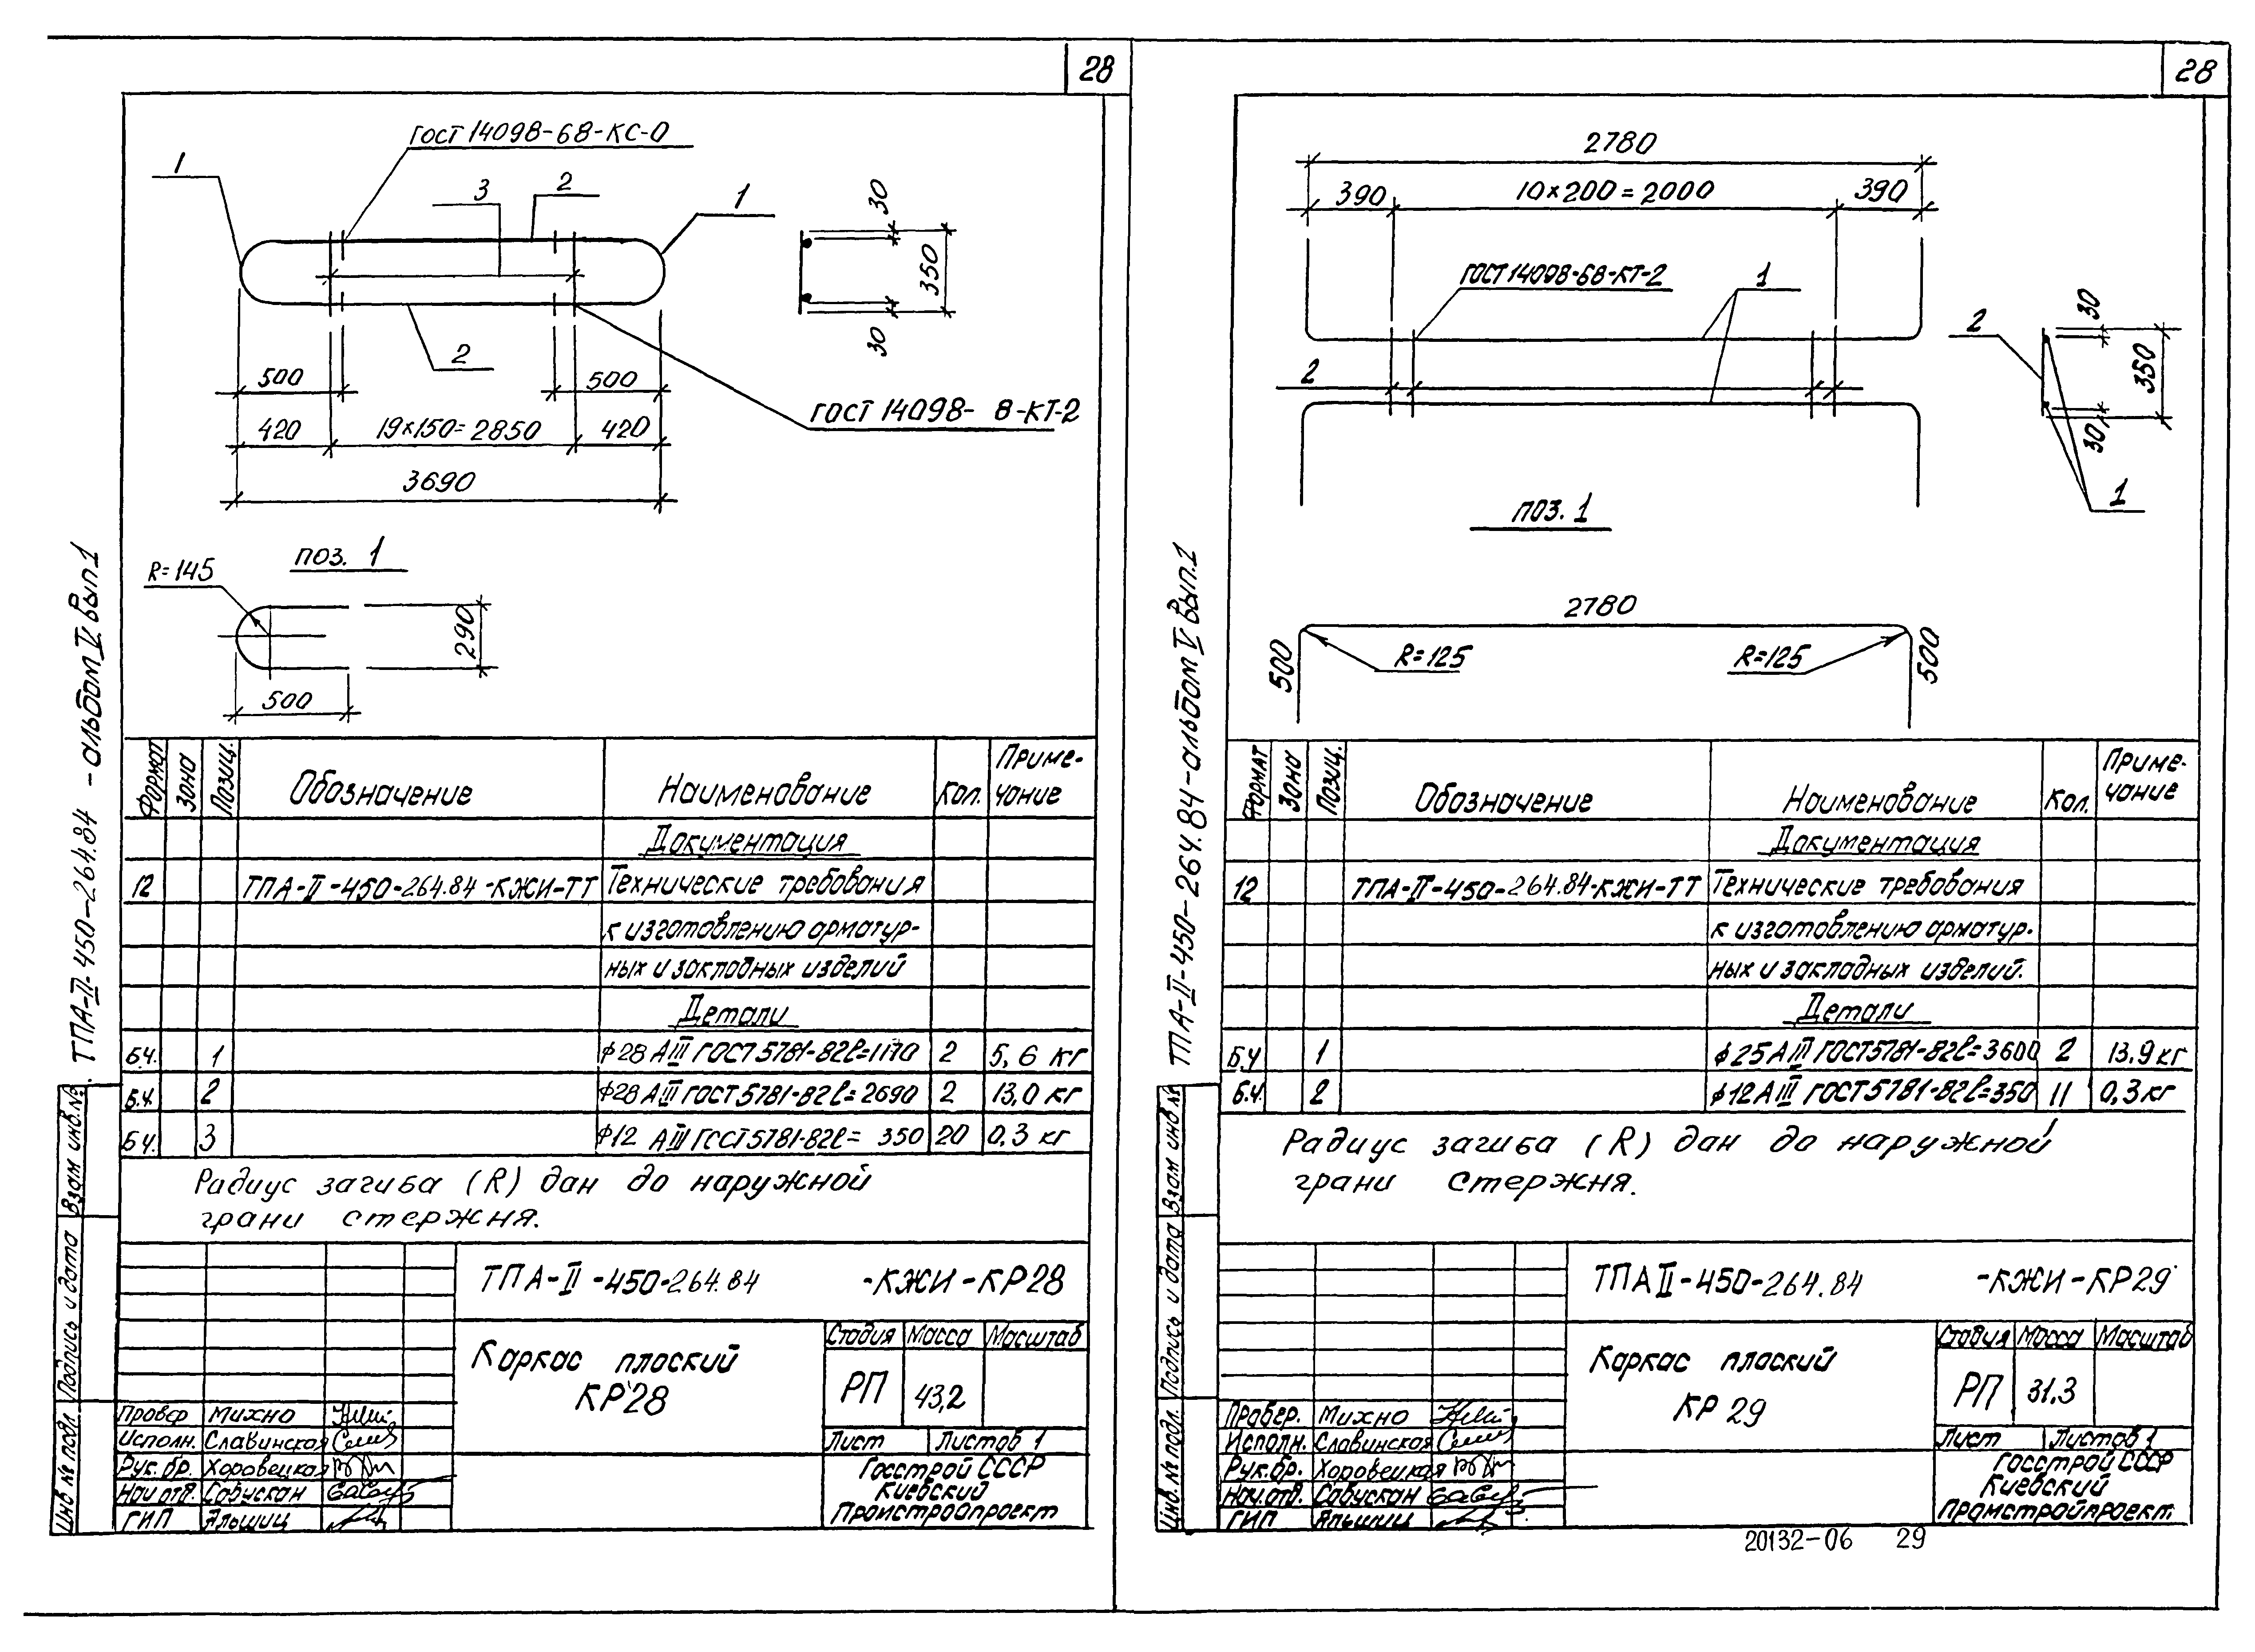 28
ГОСТ 14098-68-КС-О
1
3
2
1
30
350
30
2
500
500
ГОСТ 14098- 8-КТ-2
420
19×150=2850
420
3690
поз. 1
R=145
290
500
ТПА-II-450-264.84 -альбом IV вып.1
Формат
Зона
Позиц.
Обозначение
Наименование
Кол.
Приме-
чание
Документация
12
ТПА-II-450-264.84-КЖИ-ТТ
Технические требования
к изготовлению арматур-
ных и закладных изделий
Детали
Б.ч.
1
ϕ28 АIII ГОСТ 5781-82 ℓ=1170
2
5,6 кг
Б.ч.
2
ϕ28 АIII ГОСТ 5781-82 ℓ=2690
2
13,0 кг
Б.ч.
3
ϕ12 АIII ГОСТ 5781-82 ℓ= 350
20
0,3 кг
Радиус загиба (R) дан до наружной
грани стержня.
Взам инв.№
Подпись и дата
Инв № подл.
ТПА-II-450-264.84 -КЖИ-КР28
Каркас плоский
КР28
Стадия
Масса
Масштаб
РП
43,2
Лист
Листов 1
Госстрой СССР
Киевский
Промстройпроект
Провер
Михно
Исполн.
Славинская
Рук. бр.
Хоровецкая
Нач.отд.
Сабускан
ГИП
Яльшиц
28
2780
390
10×200=2000
390
ГОСТ 14098-68-КТ-2
1
2
2
30
350
30
1
поз. 1
2780
500
R=125
R=125
500
ТПА-II-450-264.84-альбом IV вып.1
Формат
Зона
Позиц.
Обозначение
Наименование
Кол.
Приме-
чание
Документация
12
ТПА-II-450-264.84-КЖИ-ТТ
Технические требования
к изготовлению арматур-
ных и закладных изделий.
Детали
Б.ч
1
ϕ25 АIII ГОСТ 5781-82 ℓ=3600
2
13,9 кг
Б.ч.
2
ϕ12 АIII ГОСТ 5781-82 ℓ=350
11
0,3 кг
Радиус загиба (R) дан до наружной
грани стержня.
Взам инв №
Подпись и дата
Инв.№ подл.
ТПА II-450-264.84 -КЖИ-КР29
Каркас плоский
КР 29
Стадия
Масса
Масштаб
РП
31.3
Лист
Листов 1
Госстрой СССР
Киевский
Промстройпроект
Провер.
Михно
Исполн.
Славинская
Рук.бр.
Хоровецкая
Нач.отд.
Сабускан
ГИП
Яльшиц
20132-06 29